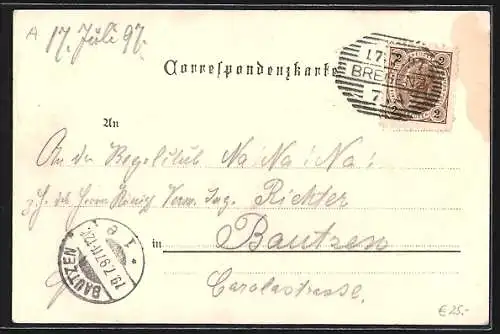 A
17. Juli 97.
Correspondenzkarte
17. 7
BREGENZ
7
2 2
2 2
An
An den Kegelclub Na! Na! Na!
z. H. des Herrn König Verm. Ing. Richter
in Bautzen
Carolastrasse.
BAUTZEN
19.7.97. 11-12V.
* 1 e
€ 25.-